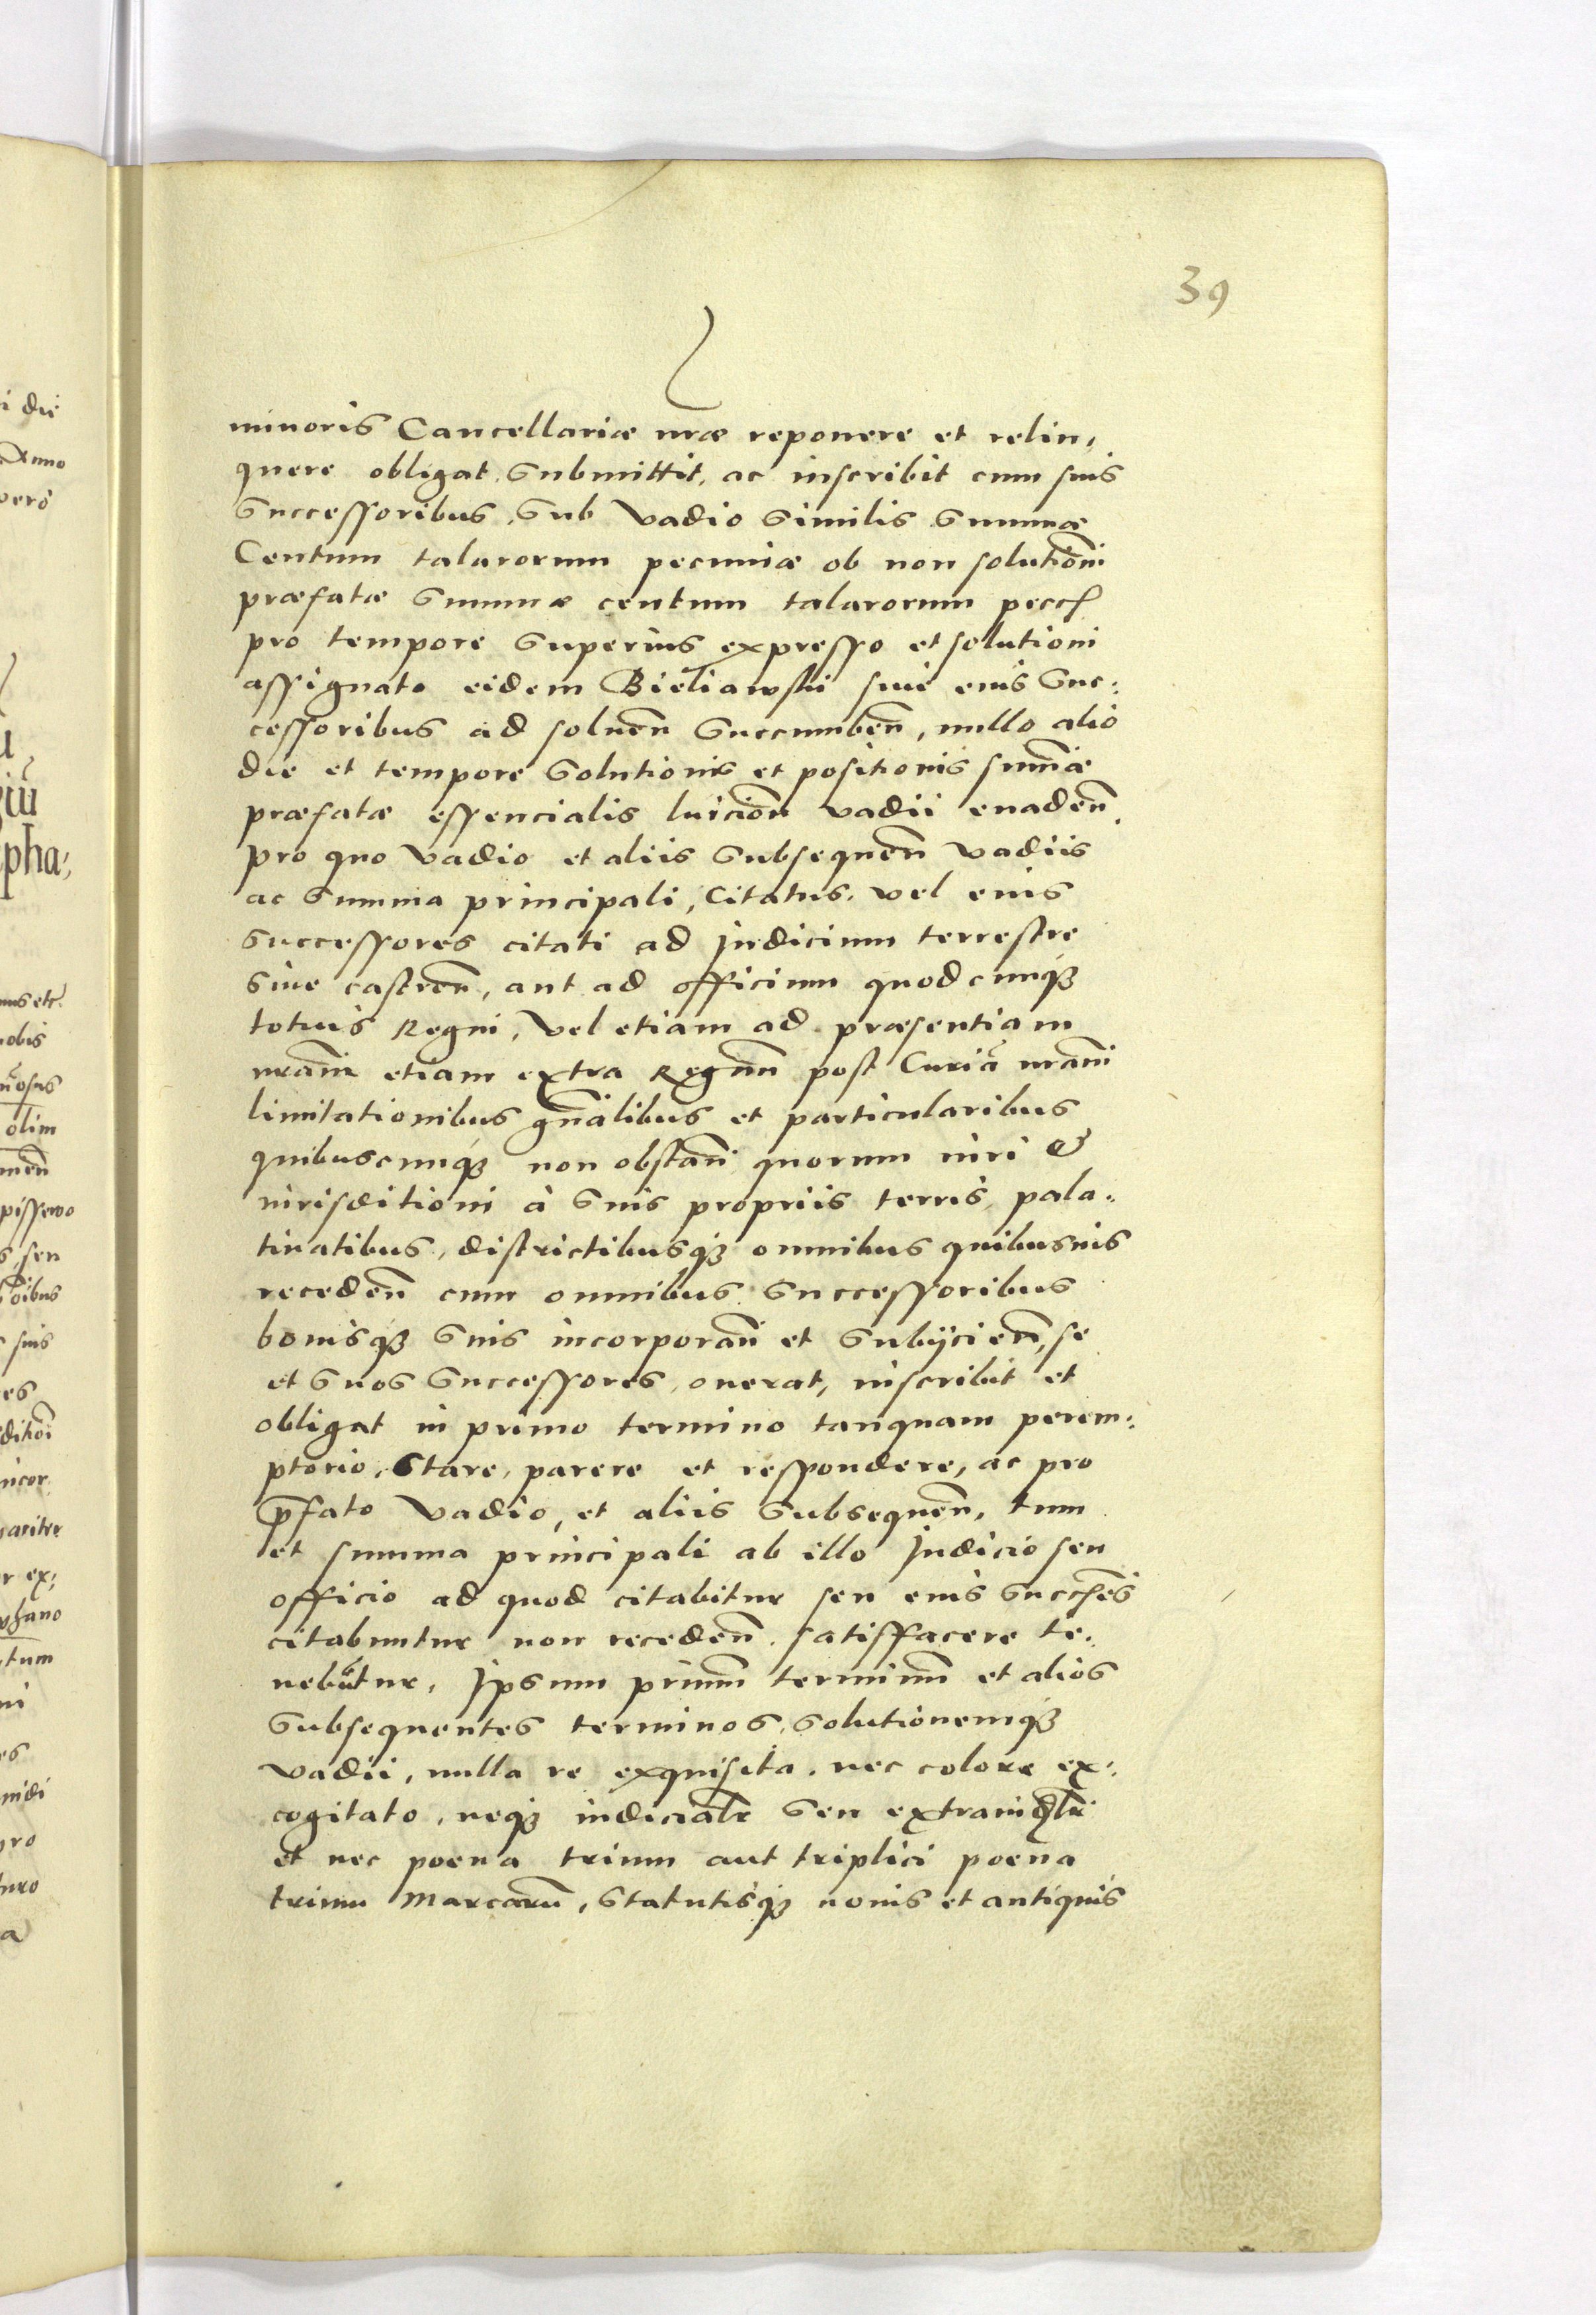 39
minoris Cancellariæ nræ reponere et relin,
quere obligat, submittit, ac inscribit cum suis
Successoribus, Sub vadio Similis Summæ
Centum talarorum pecuniæ ob non solutiom̄
præfatæ Summæ centum talarorum
pro tempore Superius expresso et solutioni
assignato eidem Bieliawski siue eius Suc:
cessoribus ad soluen̄ Succumben̄, nullo alio
die et tempore Solutionis et positionis sum̄æ
præfatæ essencialis luicion̄ vadii euaden̄,
pro quo vadio et aliis Subsequen̄ vadiis
ac Summa principali, Citatus, vel eius
Successores citati ad Judicium terrestre
Siue castren̄, aut ad officium quodcunqȝ
totius Regni, vel etiam ad præsentiam
nram̄ etiam extra Regnū post Curiā nram̄
limitationibus gn̄alibus et particularibus
quibuscunqȝ non obstan̄ quorum iuri &
iurisditioni à Suis propriis terris, pala,
tinatibus, districtibusqȝ omnibus quibusuis
receden̄ cum omnibus Successoribus
bonisqȝ Suis incorporan̄ et Subiicien̄, se
et Suos Successores, onerat, inscribit et
obligat in primo termino tanquam perem:
ptorio, Stare, parere et respondere, ac pro
p̄fato vadio, et aliis Subsequen̄, tum
et summa principali ab illo Judicio seu
officio ad quod citabitur seu eius
citabuntur non receden̄, satisffacere te,
nebūtur, Ipsum primū terminū et alios
Subsequentes terminos, Solutionemqȝ
vadii, nulla re exquisita, nec colore ex:
cogitato, neqȝ iudicialr Seu
et nec poena trium aut triplici poena
trium Marcarū, Statutisqȝ nouis et antiquis